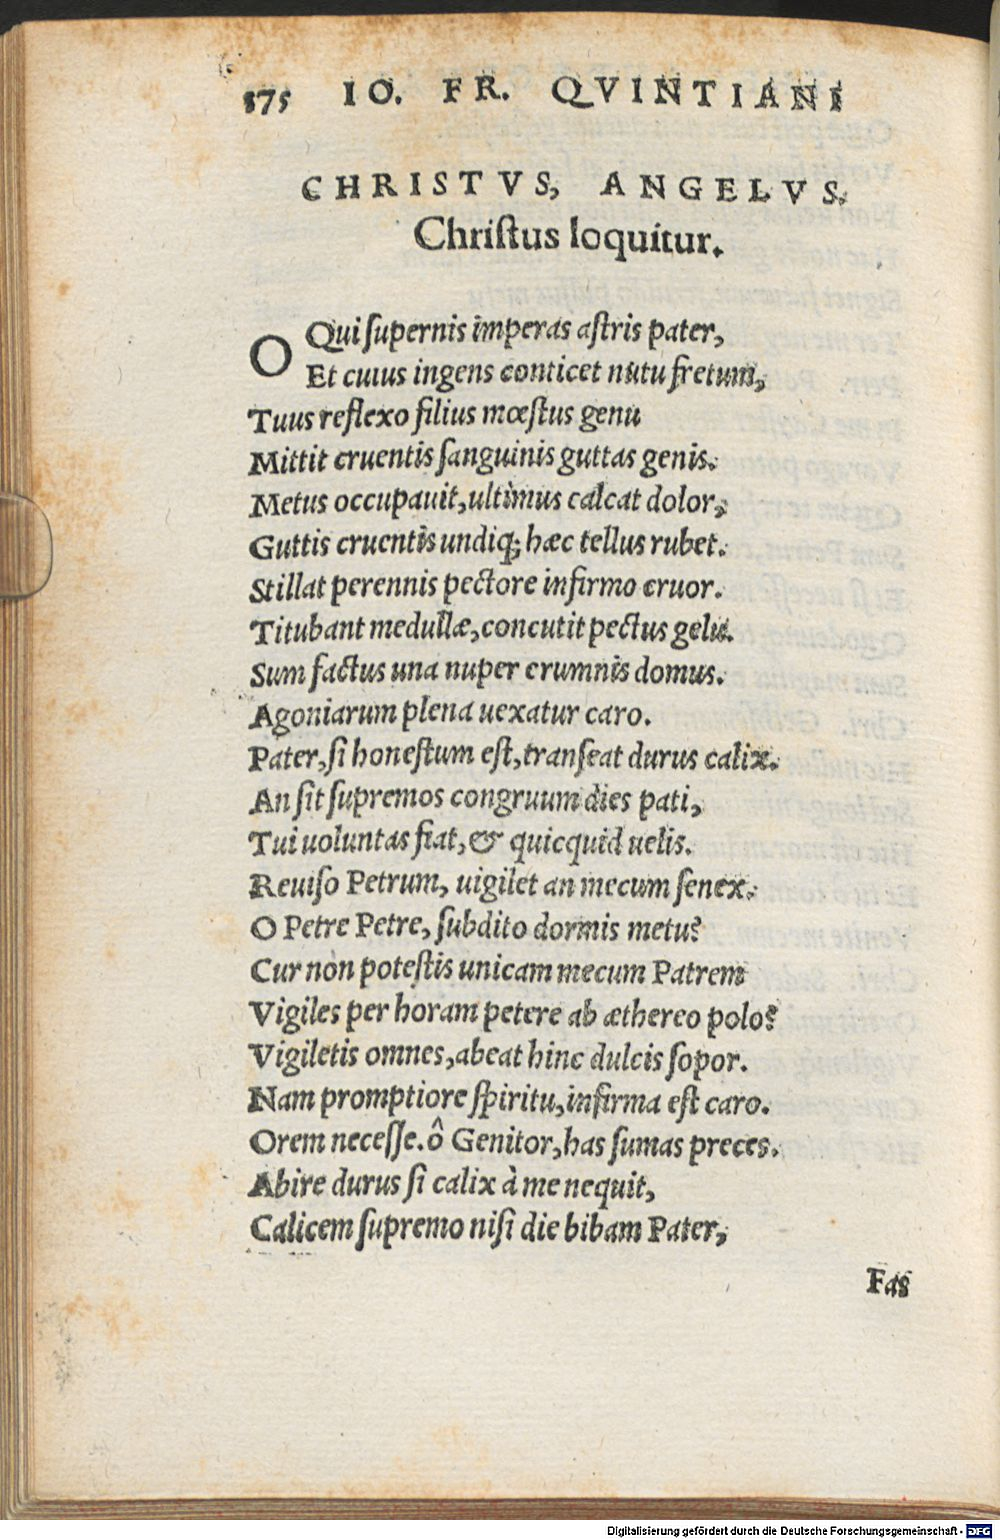 175 IO. FR. QVINTIANI
CHRISTVS, ANGELVS.
Chriſtus loquitur.
O Qui ſupernis imperas aſtris pater,
Et cuius ingens conticet nutu fretum,
Tuus reflexo filius mœſtus genu
Mittit cruentis ſanguinis guttas genis.
Metus occupauit, ultimus calcat dolor,
Guttis cruentis undiq; hæc tellus rubet.
Stillat perennis pectore infirmo cruor.
Titubant medullæ, concutit pectus gelu.
Sum factus una nuper erumnis domus.
Agoniarum plena uexatur caro.
Pater, ſi honeſtum eſt, tranſeat durus calix.
An ſit ſupremos congruum dies pati,
Tui uoluntas fiat, & quicquid uelis.
Reuiſo Petrum, uigilet an mecum ſenex.
O Petre Petre, ſubdito dormis metu?
Cur non poteſtis unicam mecum Patrem
Vigiles per horam petere ab æthereo polo?
Vigiletis omnes, abeat hinc dulcis ſopor.
Nam promptiore ſpiritu, infirma eſt caro.
Orem neceſſe. ô Genitor, has ſumas preces.
Abire durus ſi calix à me nequit,
Calicem ſupremo niſi die bibam Pater,
Fas
Digitalisierung gefördert durch die Deutsche Forschungsgemeinschaft - DFG